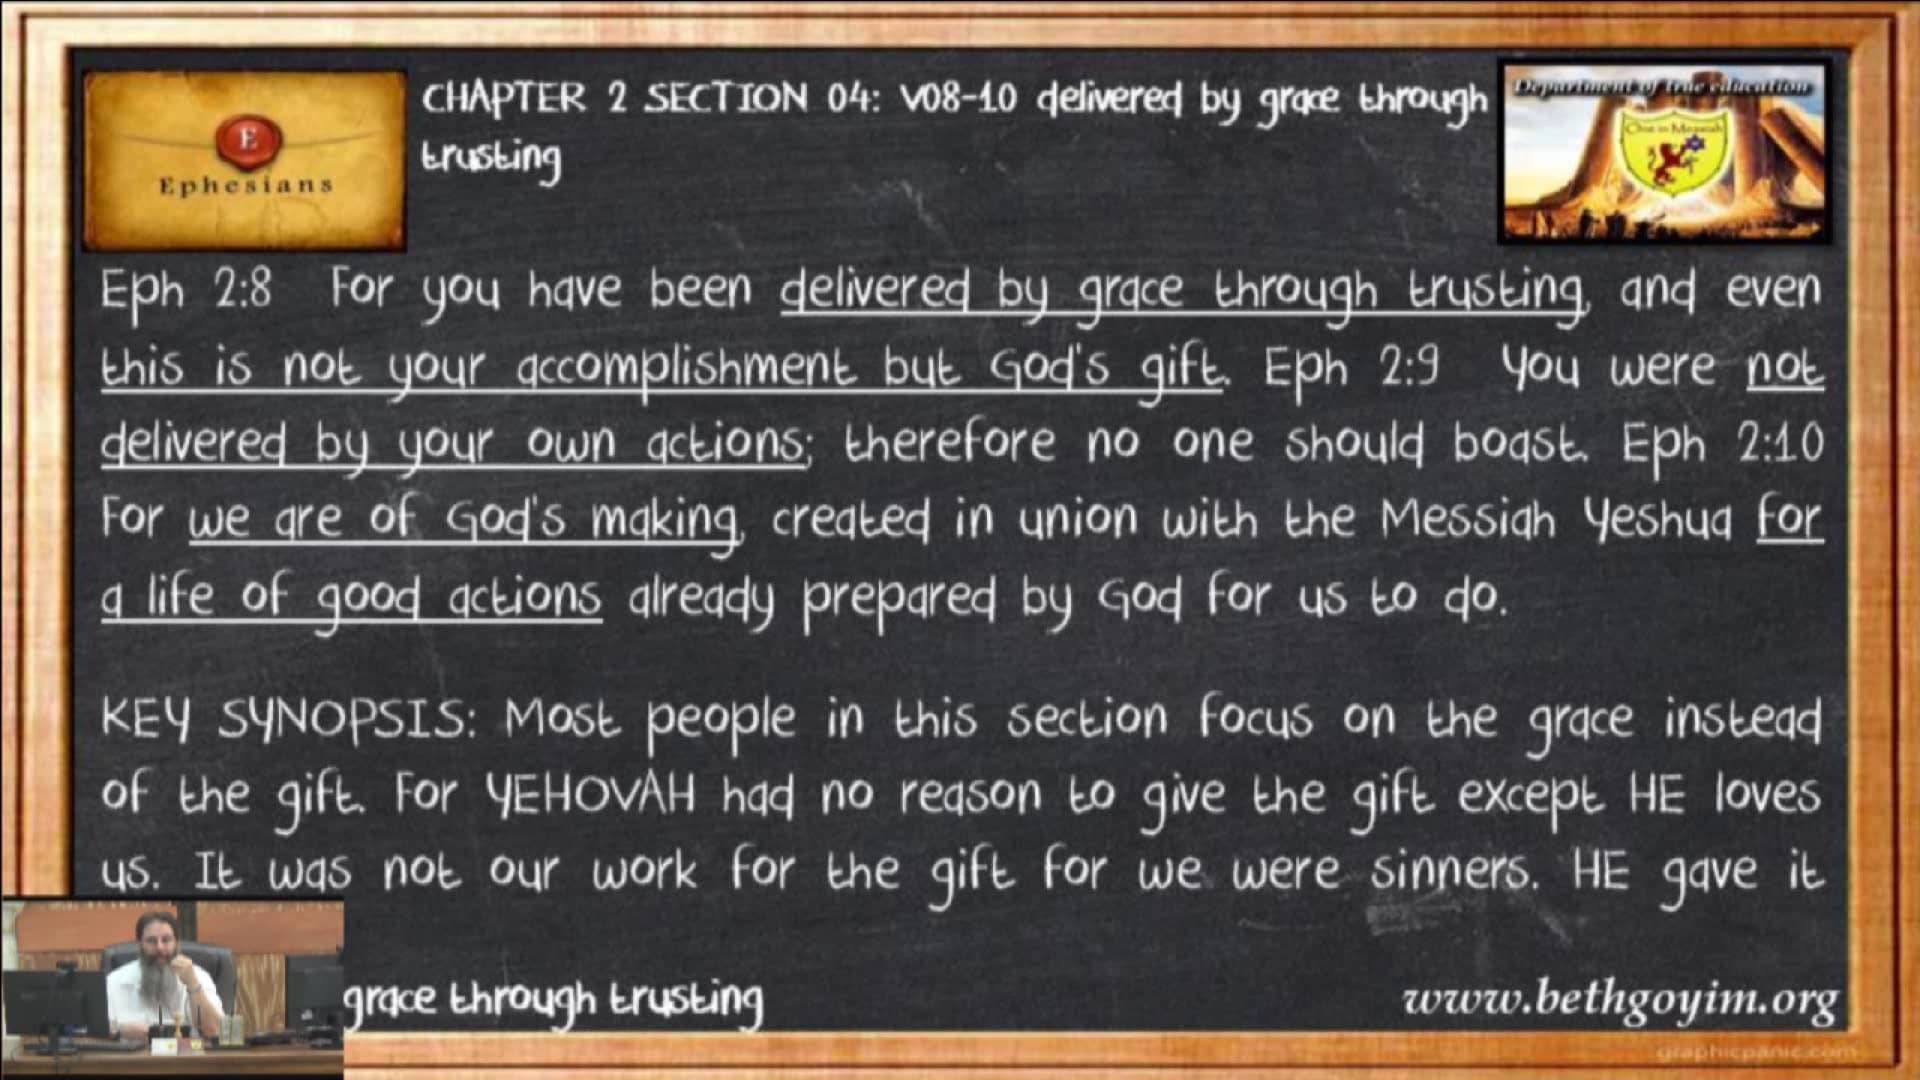 CHAPTER 2 SECTION 04: V08-10 delivered by grace through
trusting
E
Ephesians
Department of true education
One in Messiah
Eph 2:8 For you have been delivered by grace through trusting, and even
this is not your accomplishment but God's gift. Eph 2:9 You were not
delivered by your own actions; therefore no one should boast. Eph 2:10
For we are of God's making, created in union with the Messiah Yeshua for
a life of good actions already prepared by God for us to do.
KEY SYNOPSIS: Most people in this section focus on the grace instead
of the gift. For YEHOVAH had no reason to give the gift except HE loves
us. It was not our work for the gift for we were sinners. HE gave it
grace through trusting
www.bethgoyim.org
graphicpanic.com